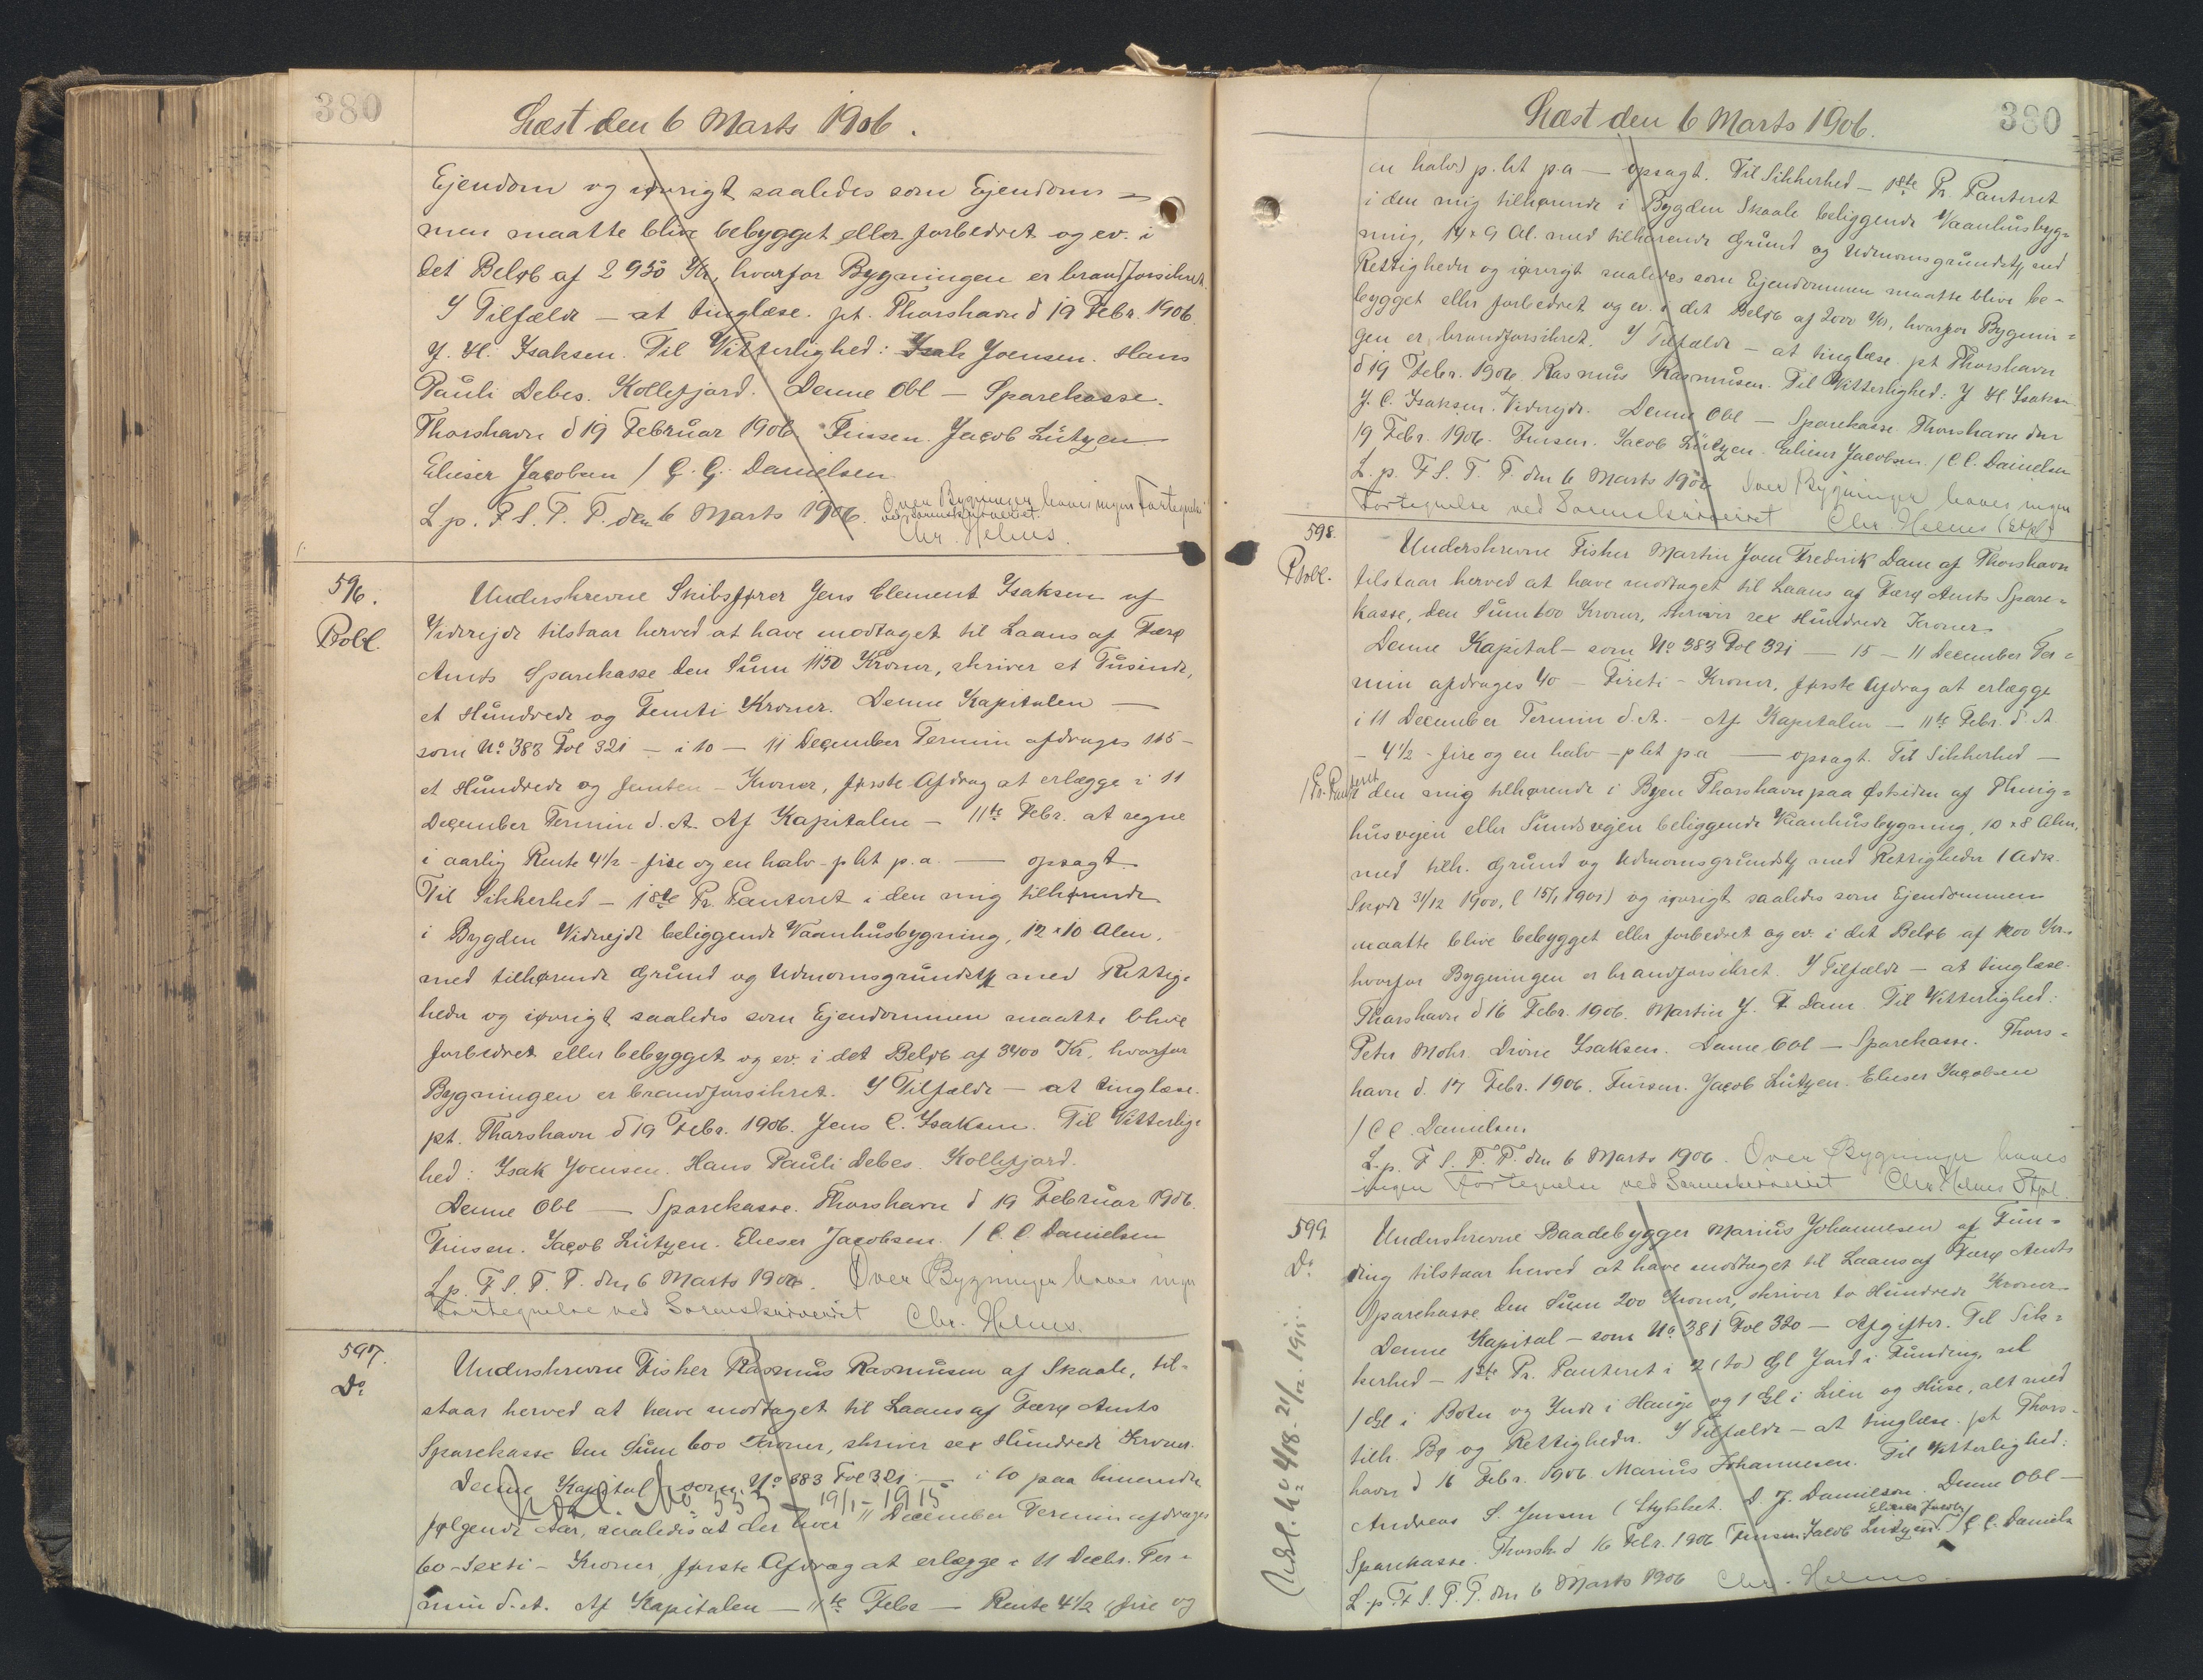 380
Læst den 6 Marts 1906.
Ejendom og iøvrigt saaledes som Ejendom=
men maatte blive bebygget eller forbedret og ev. i
det Beløb af 2950 Kr, hvorfor Bygningen er brandforsikret.
I Tilfælde — at tinglæse. pt. Thorshavn d 19 Febr. 1906.
J. H. Isaksen. Til Vitterlighed: Isak Joensen. Hans
Pauli Debes. Kollefjord. Denne Obl — Sparekasse.
Thorshavn d 19 Februar 1906. Finsen. Jacob Lützen
Elieser Jacobsen / C. C. Danielsen
L. p. F. S. T. P. den 6 Marts 1906. Over Bygninger haves ingen Fortegnelse
ved Sorenskriveriet.
Chr. Helms.
596.
Pobl.
Underskrevne Skibsfører Jens Clement Isaksen af
Viderejde tilstaar herved at have modtaget til Laans af Færø
Amts Sparekasse den Sum 1150 Kroner, skriver et Tusinde,
et Hundrede og Femti Kroner. Denne Kapitalen —
som No 383 Fol 321 — i 10 — 11 December Termin afdrages 115 —
et Hundrede og femten — Kroner, første Afdrag at erlægge i 11
December Termin d. A. Af Kapitalen — 11te Febr. at regne
i aarlig Rente 4½ - fire og en halv - pCt p. a. — opsagt.
Til Sikkerhed — 1ste Pr. Panteret i den mig tilhørende
i Bygden Viderejde beliggende Vaanhusbygning, 12 x 10 Alen,
med tilhørende Grund og Udmomsgrundstk med Rettig=
heder og iøvrigt saaledes som Ejendommen maatte blive
forbedret eller bebygget og ev. i det Beløb af 3400 Kr, hvorfor
Bygningen er brandforsikret. I Tilfælde — at tinglæse.
pt. Thorshavn d 19 Febr. 1906. Jens C. Isaksen. Til Vitterlig=
hed: Isak Joensen. Hans Pauli Debes. Kollefjord.
Denne Obl — Sparekasse. Thorshavn d 19 Februar 1906.
Finsen. Jacob Lützen. Elieser Jacobsen. / C. C. Danielsen
L. p. F. S. T. P. den 6 Marts 1906. Over Bygninger haves ingen
Fortegnelse ved Sorenskriveriet Chr. Helms.
597.
Do
Underskrevne Fisker Rasmus Rasmussen af Skaale, til=
staar herved at have modtaget til Laans af Færø Amts
Sparekasse den Sum 600 Kroner, skriver sex Hundrede Kroner.
Denne Kapital som No 383 Fol 321 — i 10 paa hinanden
No 553 19/1 - 1915
følgende Aar, saaledes at der hver 11 December Termin afdrages
60 - Sexti - Kroner, første Afdrag at erlægge i 11 Decbr. Ter=
min d. A. Af Kapitalen — 11te Febr — Rente 4½ (fire og
Læst den 6 Marts 1906.
380
en halv) p. Ct p.a — opsagt. Til Sikkerhed — 1ste Pr. Panteret
i den mig tilhørende i Bygden Skaale beliggende Vaanhusbyg=
ning, 14 x 9 Al. med tilhørende Grund og Udmomsgrundstk med
Rettigheder og iøvrigt saaledes som Ejendommen maatte blive be=
bygget eller forbedret og ev. i det Beløb af 2000 Kr, hvorfor Bygnin=
gen er brandforsikret. I Tilfælde — at tinglæse. pt Thorshavn
d 19 Febr. 1906. Rasmus Rasmussen. Til Vitterlighed: J. H. Isaksen
J. C. Isaksen. Viderejde. Denne Obl — Sparekasse. Thorshavn den
19 Febr. 1906. Finsen. Jacob Lützen. Elieser Jacobsen. / C. C. Danielsen
L. p. F. S. T. P. den 6 Marts 1906 Over Bygninger haves ingen
Fortegnelse ved Sorenskriveriet Chr. Helms (Stpl)
598.
Pobl.
Underskrevne Fisker Martin Joen Frederik Dam af Thorshavn
tilstaar herved at have modtaget til Laans af Færø Amts Spare=
kasse, den Sum 600 Kroner, skriver sex Hundrede Kroner.
Denne Kapital — som No 383 Fol 321 — 15 — 11 December Ter=
min afdrages 40 — Fireti — Kroner, første Afdrag at erlægge
i 11 December Termin d. A. — Af Kapitalen — 11te Febr. d. A.
— 4½ - fire og en halv - pCt p a — opsagt. Til Sikkerhed —
1 Pr. Panteret
i den mig tilhørende i Byen Thorshavn paa Østsiden af Thing=
husvejen eller Sundsvejen beliggende Vaanhusbygning, 10 x 8 Alen,
med tilh. Grund og Udmomsgrundstk med Rettigheder (Adk.
Skøde 31/12 1900, l 15/1 1901) og iøvrigt saaledes som Ejendommen
maatte blive bebygget eller forbedret og ev. i det Beløb af 1200 Kr.
hvorfor Bygningen er brandforsikret. I Tilfælde — at tinglæse.
Thorshavn d 16 Febr. 1906. Martin J. F. Dam. Til Vitterlighed:
Peter Mohr. Dione Isaksen. Denne Obl — Sparekasse. Thors=
havn d. 17 Febr. 1906. Finsen. Jacob Lützen. Elieser Jacobsen
/ C C. Danielsen
L. p. F. S. T. P. den 6 Marts 1906. Over Bygninger haves
ingen Fortegnelse ved Sorenskriveriet Chr. Helms Stpl.
599
Do
Underskrevne Baadebygger Marius Johannesen af Fun=
ding tilstaar herved at have modtaget til Laans af Færø Amts
Sparekasse den Sum 200 Kroner, skriver to Hundrede Kroner
Denne Kapital — som No 381 Fol 320 — Afgifter. Til Sik=
kerhed — 1ste Pr. Panteret i 2 (to) Gl Jord i Funding, nl
1 Gl i Boten og Inde i Hauge og 1 Gl i Lien og Huse, alt med
tilh. Bø og Rettigheder. I Tilfælde — at tinglæse. pt Thors=
havn d 16 Febr. 1906 Marius Johannesen. Til Vitterlighed:
Andreas S. Jensen (Stykket. D. J. Danielsen. Denne Obl —
Elieser Jacobs.
Sparekasse. Thorsh. d 16 Febr. 1906 Finsen. Jacob Lützen. / C C. Daniels
L. p. F. S. T. P. den 6 Marts 1906 Chr. Helms.
4/18 - 21/12 1911.